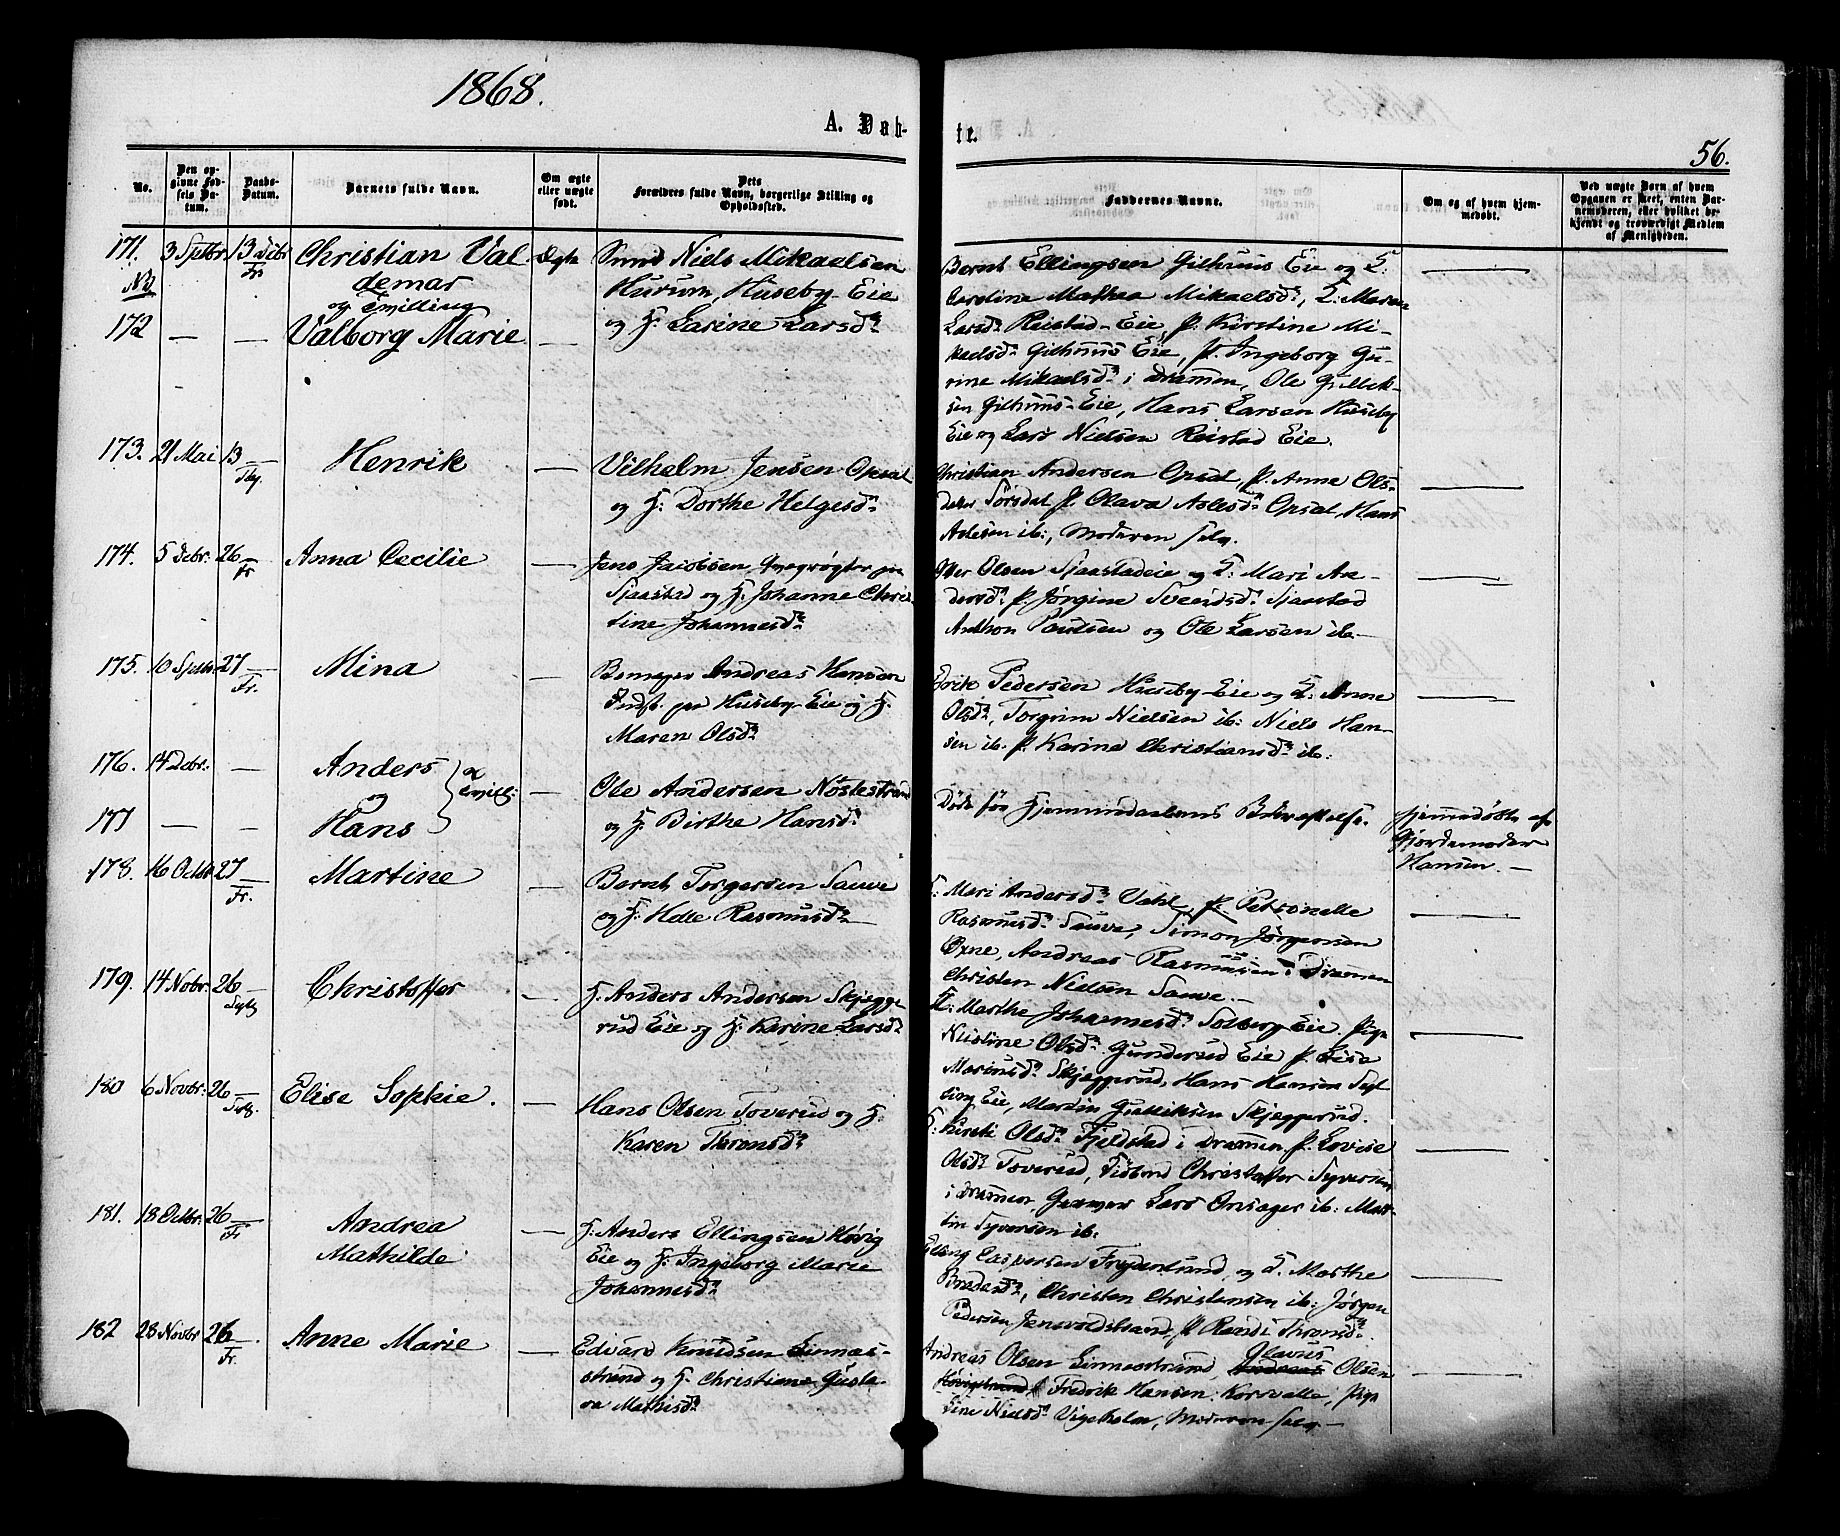 1868.
A. Døb-
te.
56.
No.
Den op-
givne Fød-
sels Da-
tum.
Daabs-
Datum.
Barnets fulde Navn.
Om ægte
eller uægte
født.
Dets
Forældres fulde Navn, borgerlige Stilling og
Opholdssted.
Faddernes Navne.
Om og af hvem hjem-
medøbt.
Ved uægte Børn af hvem
Opgaven er skeet, enten Bar-
nemoderen, eller hvilket be-
kjendt og troværdigt Medlem
af Menigheden.
171. 3 Septbr. 13 Decbr Fr Christian Val
demar
og Tvilling
Ægte
Smed Niels Mikaelsen
Hurum, Huseby-Eie
og H. Larine Larsdr.
Bernt Ellingsen Gilhuus Eie og K:
Caroline Mathea Mikaelsdr, K. Maren
Larsdr. Reistad-Eie, P. Kirstine Mi-
kaelsdr. Gilhuus Eie, P. Ingeborg Gu-
rine Mikaelsdr. i Drammen, Ole Gullik-
sen Gilhuus-Eie, Hans Larsen Huseby
Eie og Lars Nielsen Reistad Eie.
172 — — Valborg Marie —
173. 21 Mai 13 — Henrik —
Vilhelm Jensen Opsal
og H: Dorthe Helgesdr.
Christian Andersen Opsal, P. Anne Ols-
datter Sørsdal P. Olava Aslesdr. Opsal, Hans
Aslesen ib:, Moderen selv.
174. 5 Decbr. 26 Fr Anna Cecilie —
Jens Jacobsen, Qvægrøgter paa
Sjaastad og H: Johanne Chris-
tine Johannesdr.
Iver Olsen Sjaastadeie og K: Mari An-
dersdr. P. Jørgine Svendsdr. Sjaastad
Anthon Paulsen og Ole Larsen ib.—
175. 10 Septbr. 27 Fr. Mina
Andreas Hansen
Indst. paa Huseby Eie og H.
Maren Olsdr.
Erik Pedersen Huseby Eie og K: Anne
Olsdr, Torgrim Nielsen ib: Niels Han-
sen ib. P. Karine Christiansdr. ib:
176. 14 Decbr: — Anders
og
177 — — Hans
Tvill: —
Ole Andersen Nøstestrand
og H. Birthe Hansdr.
Døde før Hjemmedaabens Bekræftelse.
Hjemmedøbte af
Gjordemoder
Hansen. —
178. 16 Octbr 27 Fr. Martine —
Bernt Torgersen Sauve
og H: Helle Rasmusdr. —
K: Mari Andersdr. Vahl, P. Petronelle
Rasmusdr. Sauve, Simon Jørgensen
Øxne, Andreas Rasmusen i Drammen
Christen Nielsen Sauve. —
179. 14 Nobr. 26 — Christoffer —
H. Anders Andersen Skjægge
rud Eie og H: Karine Larsdr.
K: Marthe Johannesdr. Solberg Eie. Pige
Nicoline Olsdr. Gunderud Eie P. Lisa
Mariusdr. Skjæggerud, Hans Hansen Syl
ling Eie, Martin Gulliksen Skjæggerud.
180 6 Novbr: 26 Elise Sophie. —
Hans Olsen Toverud og H:
Karen Thronsdr.
K: Kirsti Olsdr. Fjeldstad i Drammen, P. Lovise
Olsdr. Toverud, Christoffer Syversen
i Drammen, Lars Onsager ib: Mar-
tin Syversen ib.
181. 18 Octbr: 26 Fr Andrea
Mathilde
—
H. Anders Ellingsen Høvig
Eie og H: Ingeborg Marie
Johannesdr.
Elling Caspersen Frydenlund, og K. Marthe
Christen Christensen ib: Jørgen
Pedersen P. Randi Thronsdr.
182 28 Novbr 26 Fr. Anne Marie —
Edvard Knudsen Linnes-
strand og H. Christiane Gusta-
va Mathisdr.
Andreas Olsen Linnesstrand, Olsen
Fredrik Hansen Korvalle, Pige
Line Nielsdr. Moderen selv —